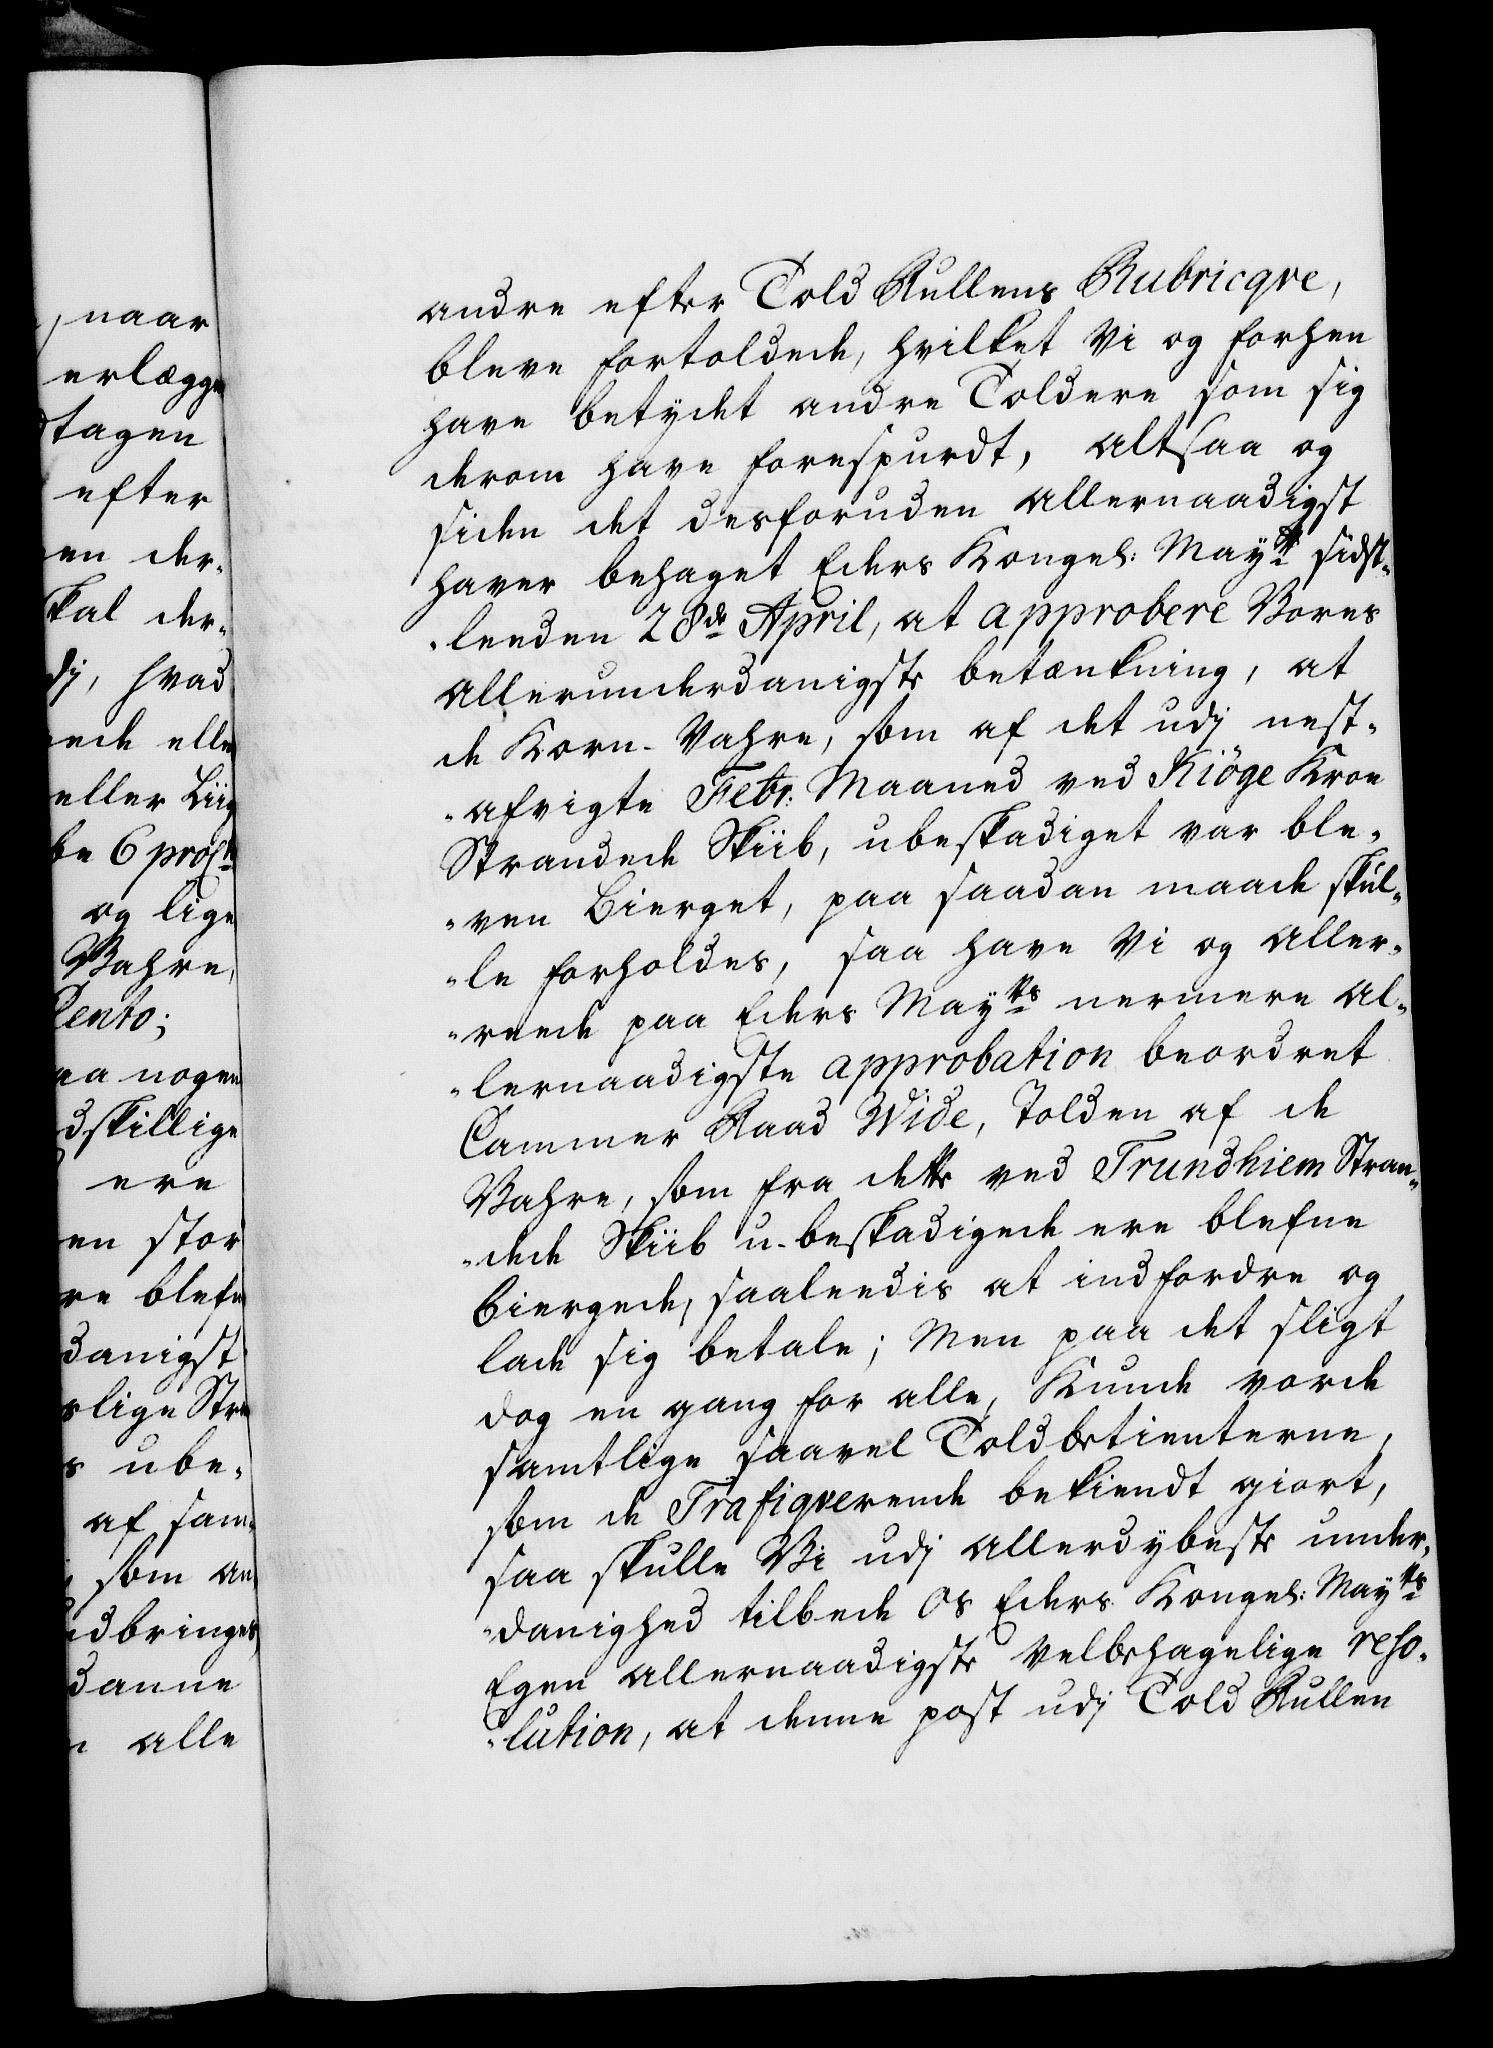 naar
erlægge
tagen
efter
en der-
skal der-
dj, hvad
ede elle
eller Liig
be 6 proC
og lige
Vahre,
Cento;
aa nogen
dskillige
ere
en stor
re blefn
danigst
slige Stra
s ube-
af sam-
som an
dbringes
danne
alle
andre efter Told Rullens Rubricqve,
bleve fortoldede, hvilket Vi og forhen
have betydet andre Toldere som sig
derom have forespurdt, altsaa og
siden det desforuden allernaadigst
haver behaget Eders Kongel: Mayts sidst-
-leeden 28de April, at approbere Vores
allerunderdanigste betænkning, at
de Korn-Vahre, som af det udj nest-
-afvigte Febr: Maaned ved Kiöge Kroe
Strandede Skiib, ubeskadiget var ble-
-ven Bierget, paa saadan maade skul-
-le forholdes, saa have Vi og aller-
-reede paa Eders Mayts nermere al-
-lernaadigste approbation beordret
Cammer Raad Wide, Tolden af de
Vahre, som fra dette ved Trundhiem Stran-
-dede Skiib u-beskadigede ere blefne
biergede, saaleedis at indfordre og
lade sig betale; Men paa det sligt
dog en gang for alle, Kunde vorde
samtlige saavel Toldbetienterne,
som de Trafiqverende bekiendt giort,
saa skulle Vi udj allerdybeste under-
-danighed tilbede Os Eders Kongel: Mayts
Egen allernaadigste Velbehagelige reso-
-lution, at denne post udj Told Rullen